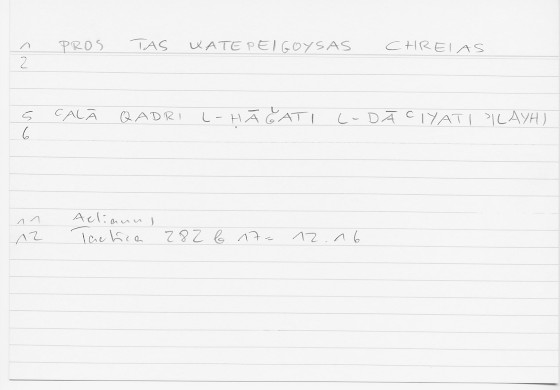 1 PROS TAS KATEPEIGOYSAS CHREIAS
2
5 ʿALĀ QADRI L-ḤĀǦATI L-DĀʿIYATI ʾILAYHI
6
11 Aelianus,
12 Tactica 282 b 17 = 12.16